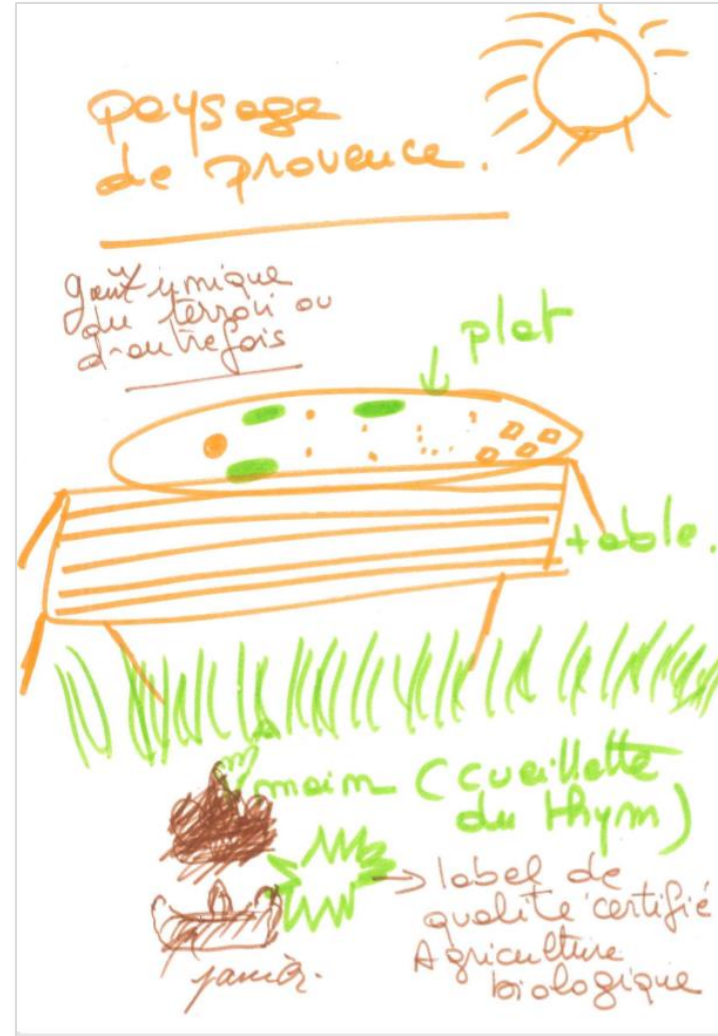 paysage
de provence.
goût unique
du terroir ou
d'autrefois
plat
table.
main (cueillette
du thym)
label de
qualité certifié
Agriculture
biologique
panier.